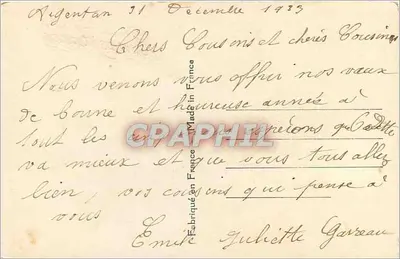 Argentan 31 Decembre 1933
Chers Cousins et cheres Cousines
Nous venons vous offrir nos vœux
de bonne et heureuse année à
tout les
va mieux et que vous tous allez
bien, vos cousins qui pense a
vous
Emile Juliette Gareau
Fabriqué en France - Made in France
CPAPHIL